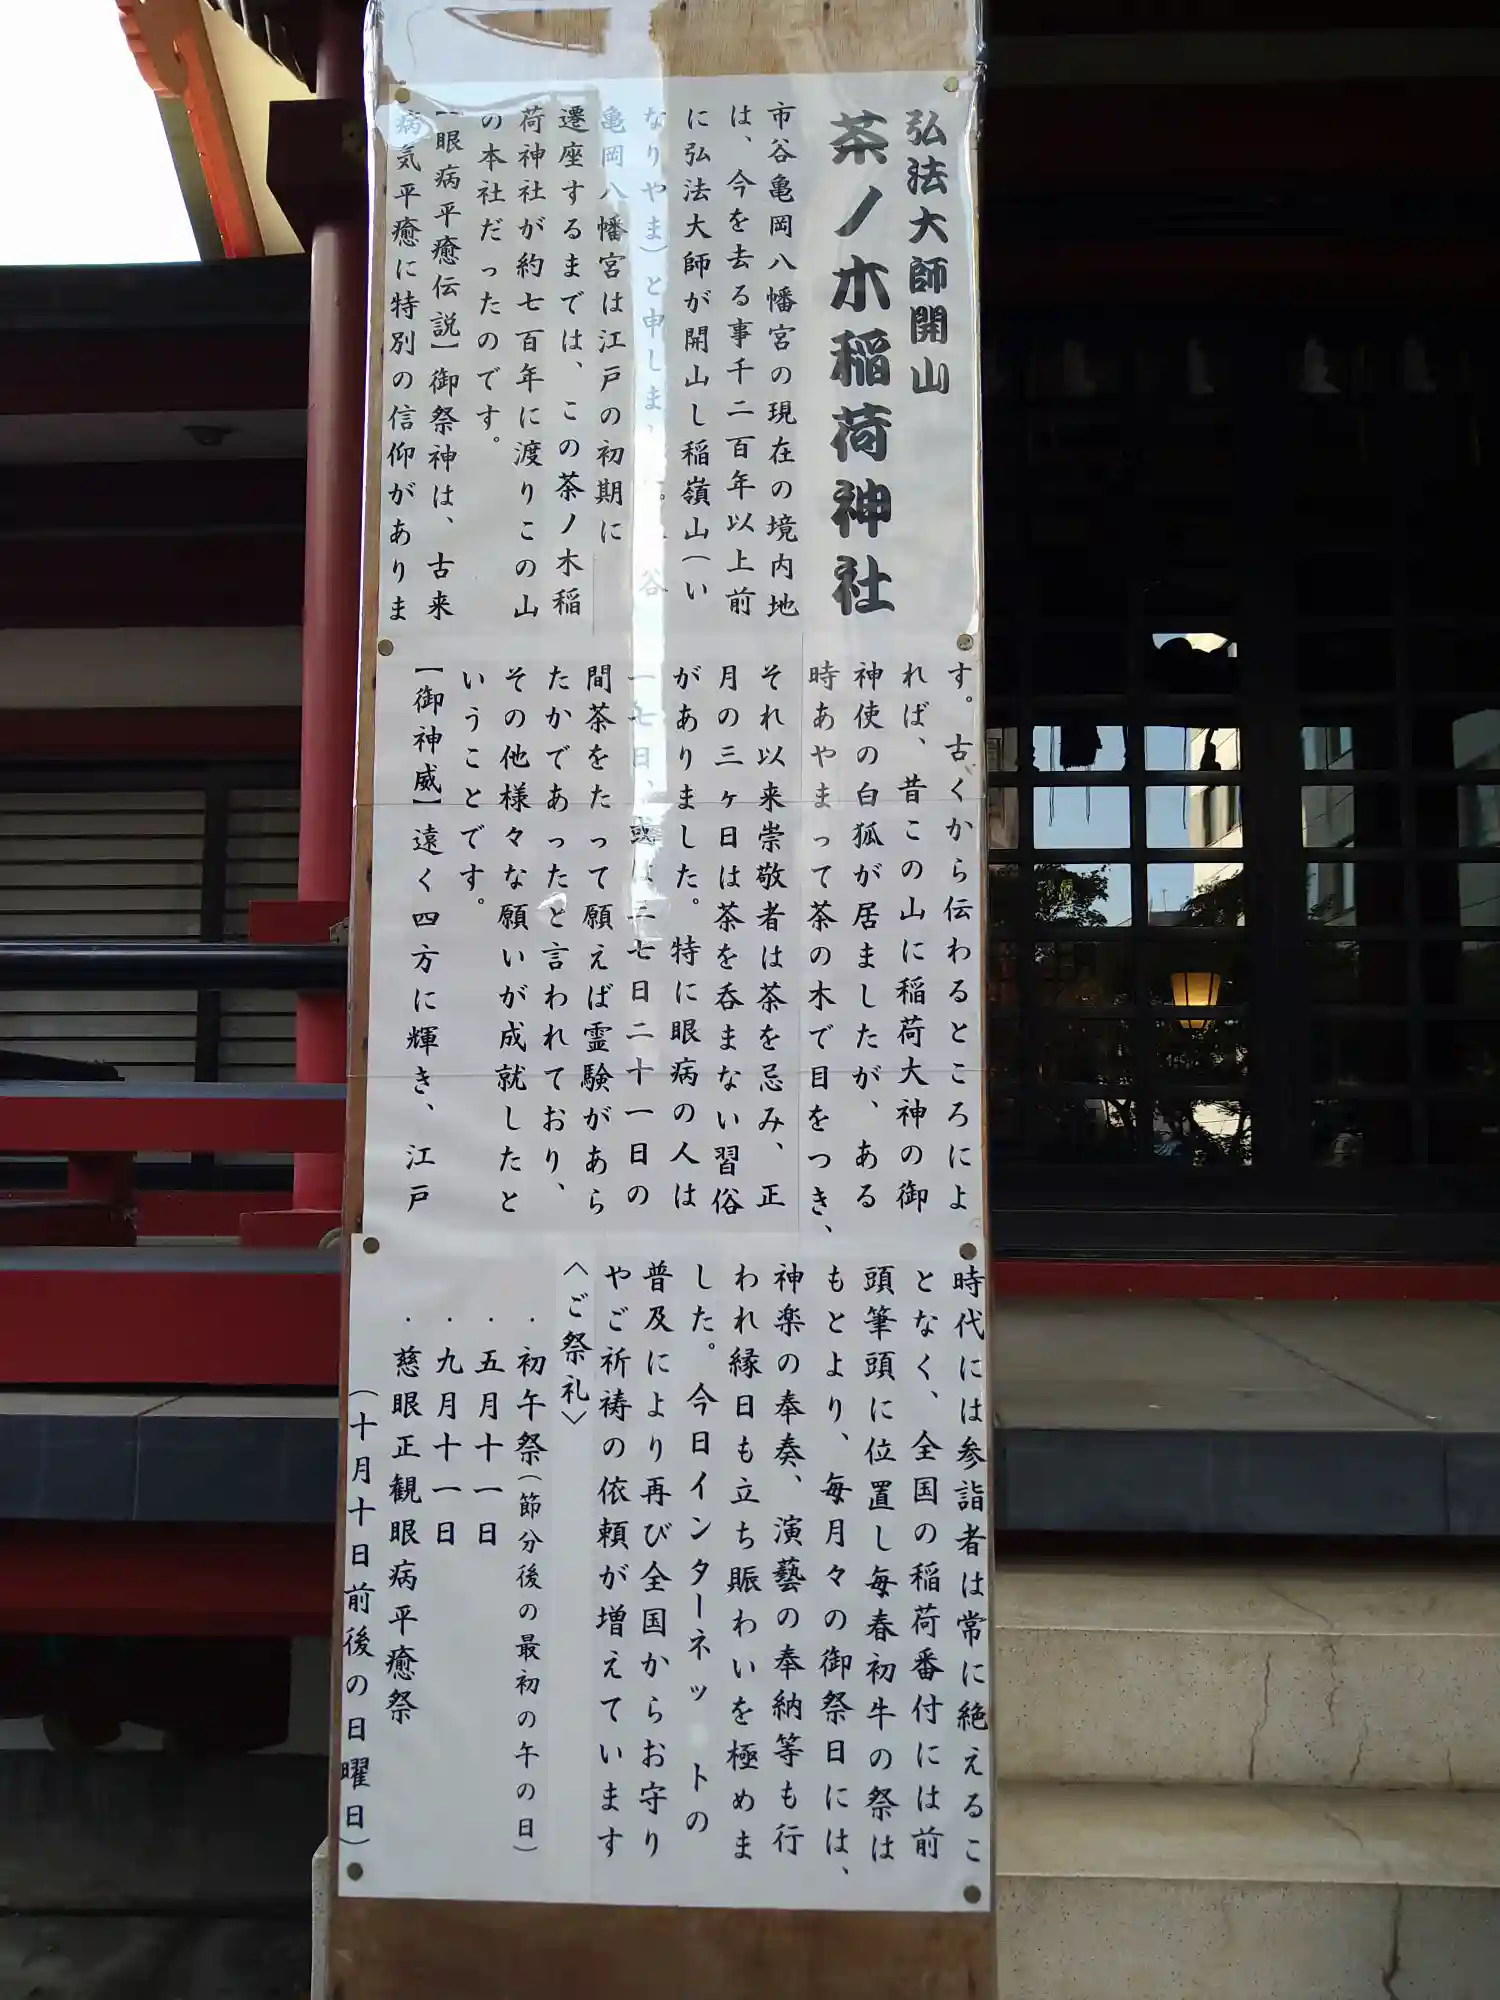 弘法大師開山
茶ノ木稲荷神社
市谷亀岡八幡宮の現在の境内地
は、今を去る事千二百年以上前
に弘法大師が開山し稲嶺山(い
なりやま)と申しま
亀岡八幡宮は江戸の初期に
遷座するまでは、この茶ノ木稲
荷神社が約七百年に渡りこの山
の本社だったのです。
【眼病平癒伝説】御祭神は、古来
病気平癒に特別の信仰がありま
す。古くから伝わるところによ
れば、昔この山に稲荷大神の御
神使の白狐が居ましたが、ある
時あやまって茶の木で目をつき、
それ以来崇敬者は茶を忌み、正
月の三ヶ日は茶を呑まない習俗
がありました。特に眼病の人は
一七日、或は三七日二十一日の
間茶をたって願えば霊験があら
たかであったと言われており、
その他様々な願いが成就したと
いうことです。
【御神威】遠く四方に輝き、江戸
時代には参詣者は常に絶えるこ
となく、全国の稲荷番付には前
頭筆頭に位置し毎春初牛の祭は
もとより、毎月々の御祭日には、
神楽の奉奏、演藝の奉納等も行
われ縁日も立ち賑わいを極めま
した。今日インターネットの
普及により再び全国からお守り
やご祈祷の依頼が増えています
〈ご祭礼〉
・初午祭(節分後の最初の午の日)
・五月十一日
・九月十一日
・慈眼正観眼病平癒祭
(十月十日前後の日曜日)